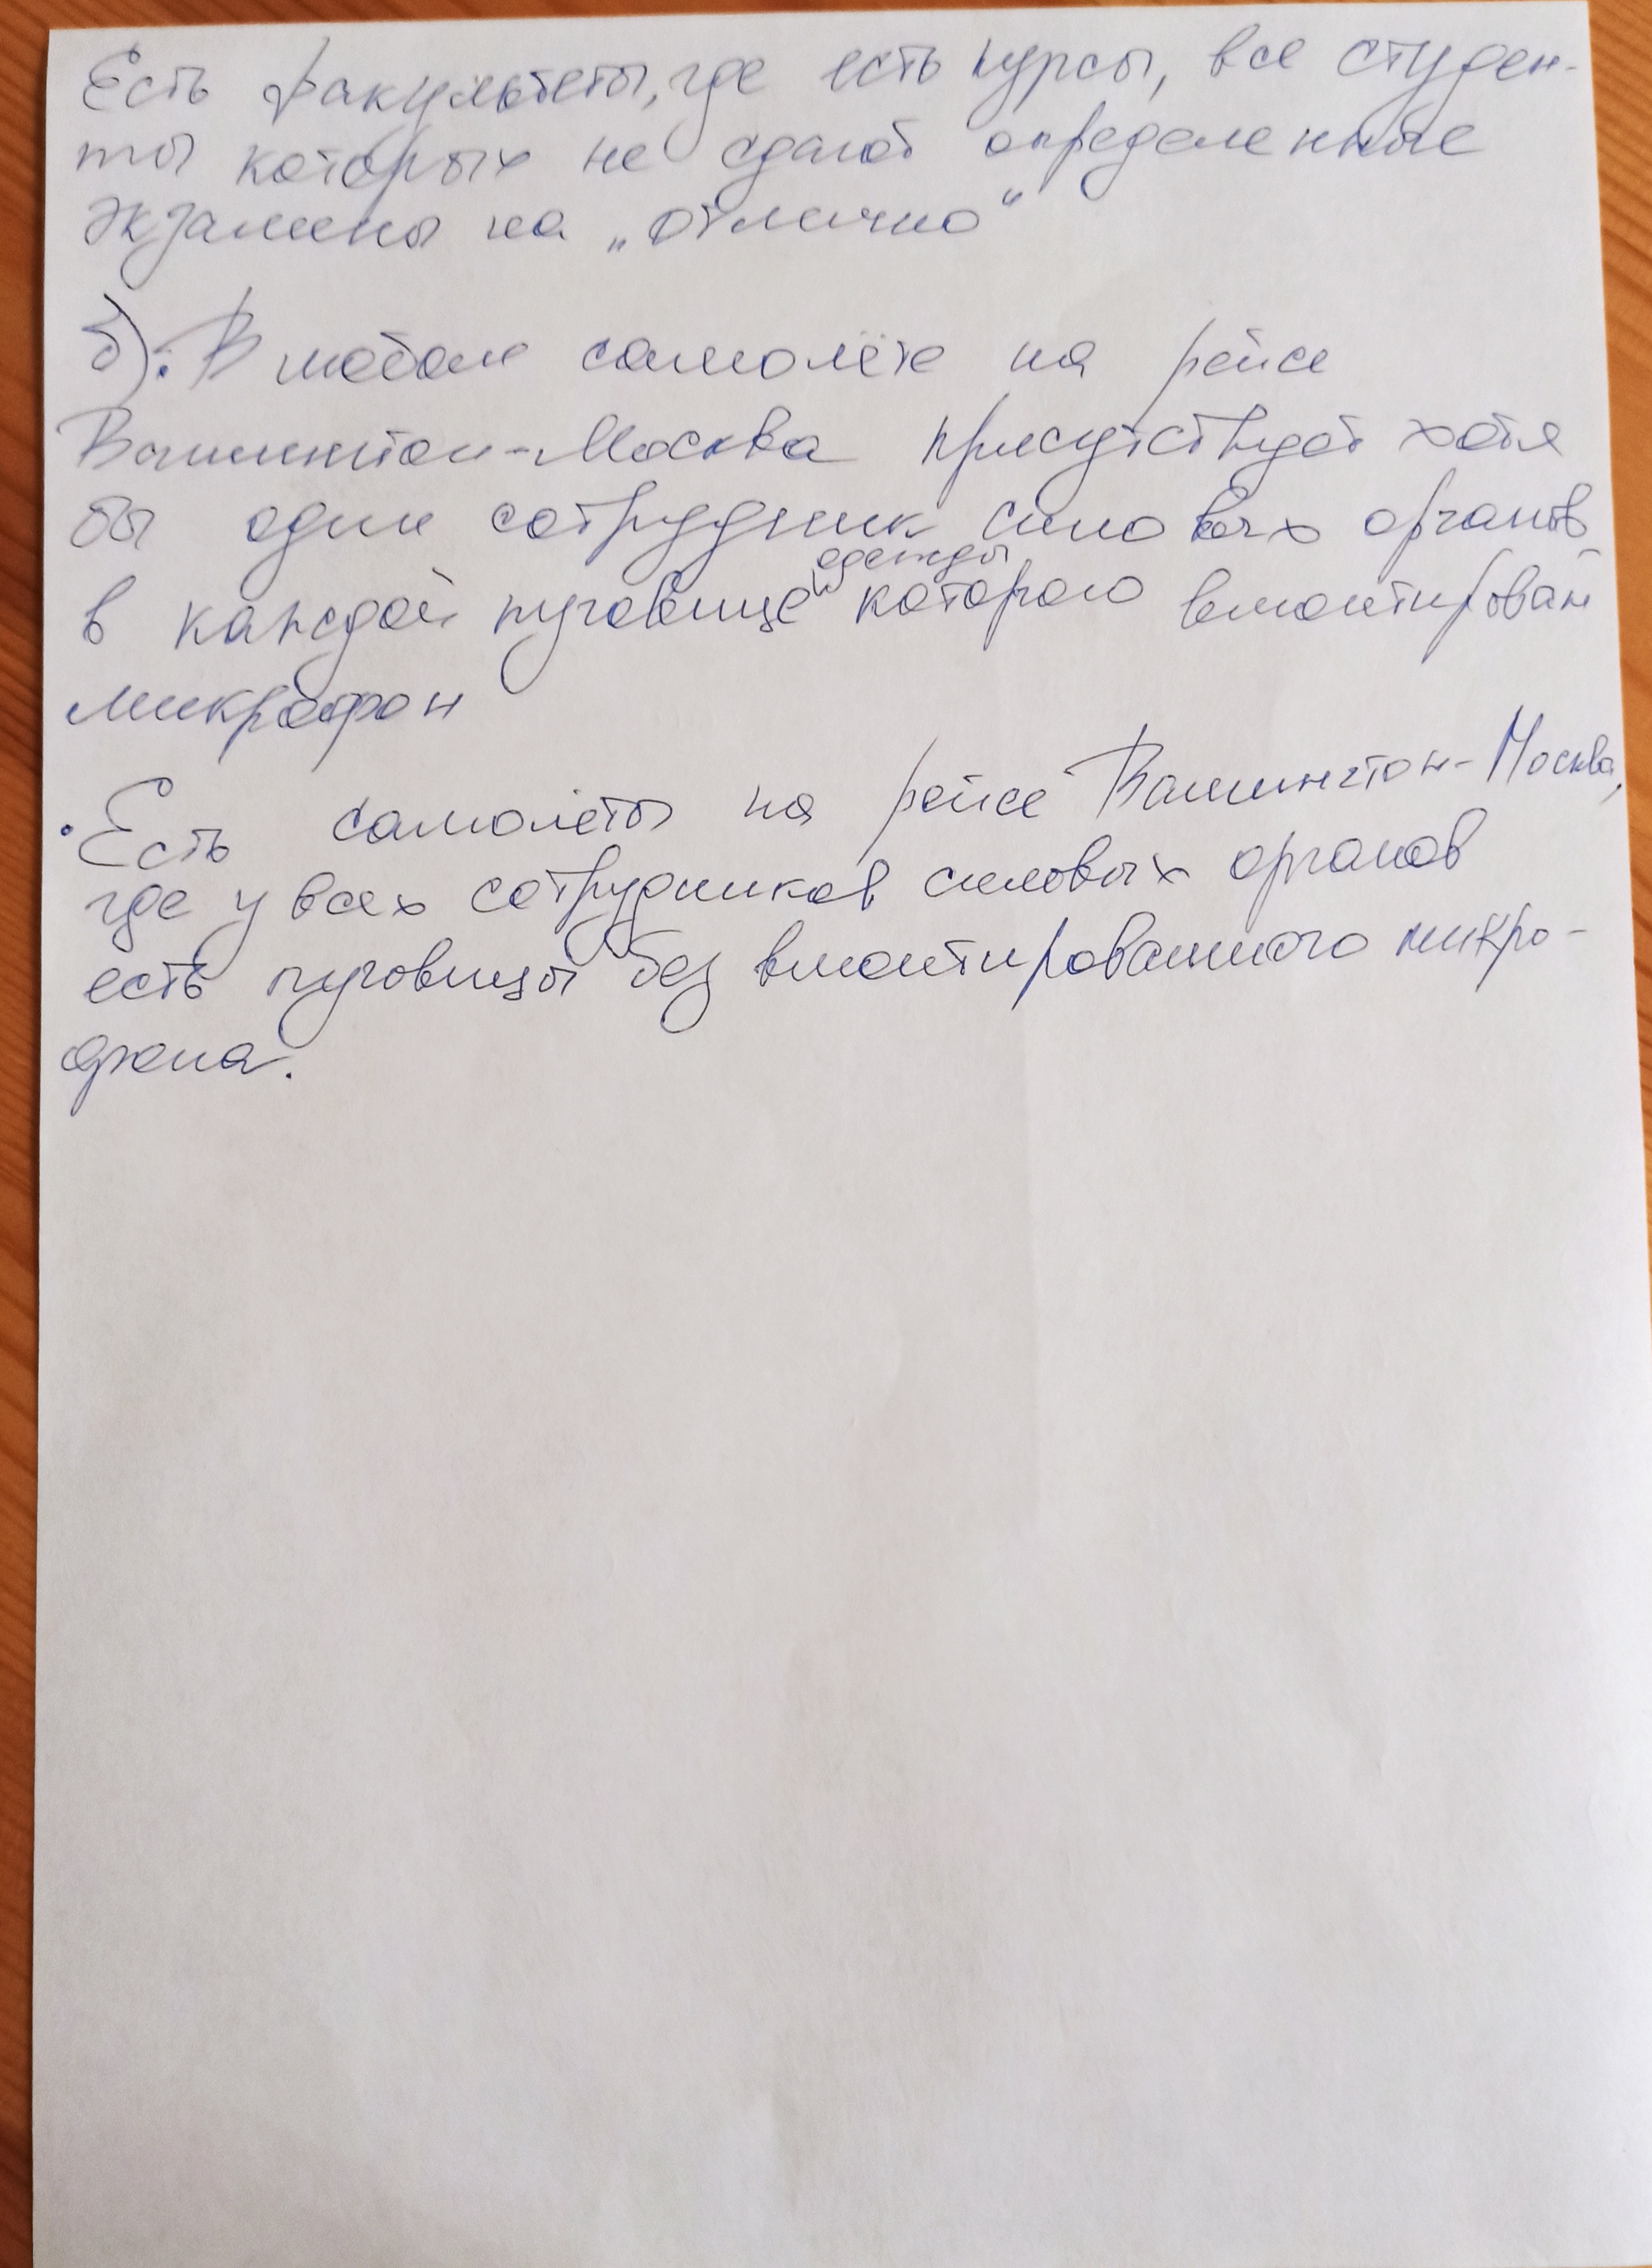 Есть факультеты, где есть курсы, все студен-
ты которых не сдают определенные
экзамены на „отлично“
б). В любом самолёте на рейсе
Вашингтон-Москва присутствует хотя
бы один сотрудник силовых органов
в каждой пуговице одежды которого вмонтирован
микрофон
• Есть самолёты на рейсе Вашингтон-Москва,
где у всех сотрудников силовых органов
есть пуговицы без вмонтированного микро-
фона.